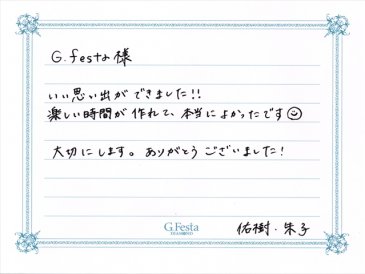 G.festa様
いい思い出ができました!!
楽しい時間が作れて、本当によかったです☺
大切にします。ありがとうございました!
G.Festa
佑樹・朱子